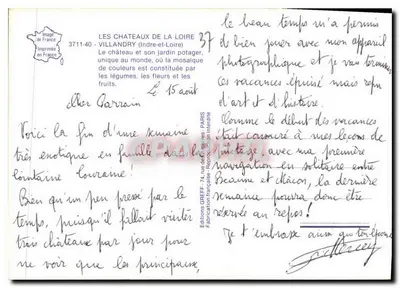 Image
de France
Imprimée en
France
LES CHATEAUX DE LA LOIRE
3711-40 - VILLANDRY (Indre-et-Loire)
Le château et son jardin potager,
unique au monde, où la mosaïque
de couleurs est constituée par
les légumes, les fleurs et les
fruits.
37
Le 15 août
Cher Parrain
Voici la fin d'une semaine
très exotique en famille dans la
lointaine
Bien qu'un peu pressé par le
temps, puisqu'il fallait visiter
trois châteaux par jour pour
ne voir que les principaux
Editions GREFF PARIS
Fabrication française - Reproduction interdite
le beau temps m'a permis
de bien jouer avec mon appareil
photographique et je vais
vacances épuisé mais repu
d'art et d'histoire.
Comme le début des vacances
était consacré à mes leçons de
pilotage, avec ma première
navigation en solitaire entre
Beaune et Mâcon, la dernière
semaine pourra donc être
réservée au repos !
Je t'embrasse ainsi que